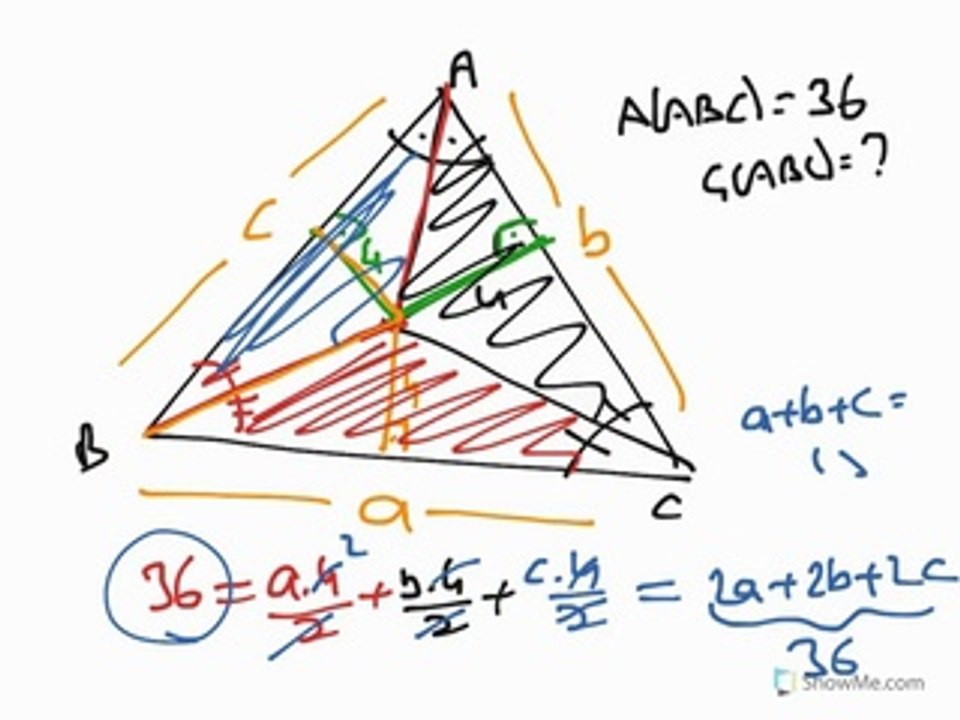 A
A(ABC) = 36
Ç(ABC) = ?
c
b
4
4
4
B
C
a
a+b+c =
36 = a.4/2 + b.4/2 + c.4/2 = 2a+2b+2c
2
36
ShowMe.com